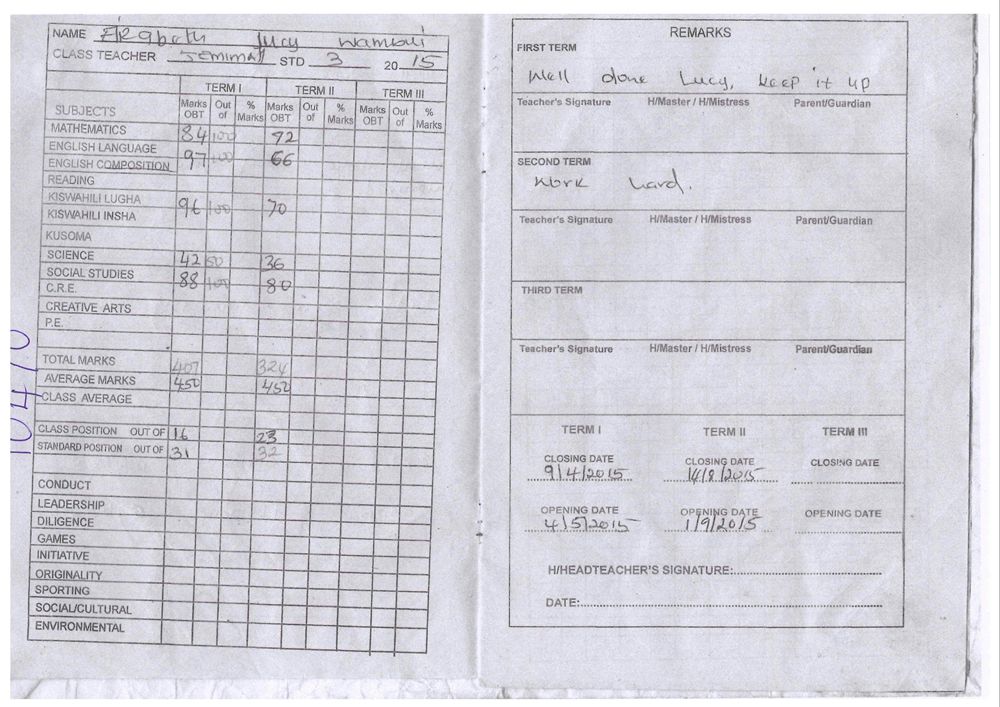 NAME Elizabeth Lucy Wambui
CLASS TEACHER STD 3 2015
TERM I TERM II TERM III
SUBJECTS Marks OBT Out of % Marks Marks OBT Out of % Marks Marks OBT Out of % Marks
MATHEMATICS 84 100 92
ENGLISH LANGUAGE
ENGLISH COMPOSITION 97 100 66
READING
KISWAHILI LUGHA
KISWAHILI INSHA 96 100 70
KUSOMA
SCIENCE 42 50 36
SOCIAL STUDIES 88 100 80
C.R.E.
CREATIVE ARTS
P.E.
TOTAL MARKS 407 324
AVERAGE MARKS 450 450
CLASS AVERAGE
CLASS POSITION OUT OF 16 23
STANDARD POSITION OUT OF 31 32
CONDUCT
LEADERSHIP
DILIGENCE
GAMES
INITIATIVE
ORIGINALITY
SPORTING
SOCIAL/CULTURAL
ENVIRONMENTAL
REMARKS
FIRST TERM
Well done Lucy, keep it up
Teacher's Signature H/Master / H/Mistress Parent/Guardian
SECOND TERM
Work hard.
Teacher's Signature H/Master / H/Mistress Parent/Guardian
THIRD TERM
Teacher's Signature H/Master / H/Mistress Parent/Guardian
TERM I TERM II TERM III
CLOSING DATE CLOSING DATE CLOSING DATE
9/4/2015 14/8/2015
OPENING DATE OPENING DATE OPENING DATE
4/5/2015 1/9/2015
H/HEADTEACHER'S SIGNATURE:
DATE: